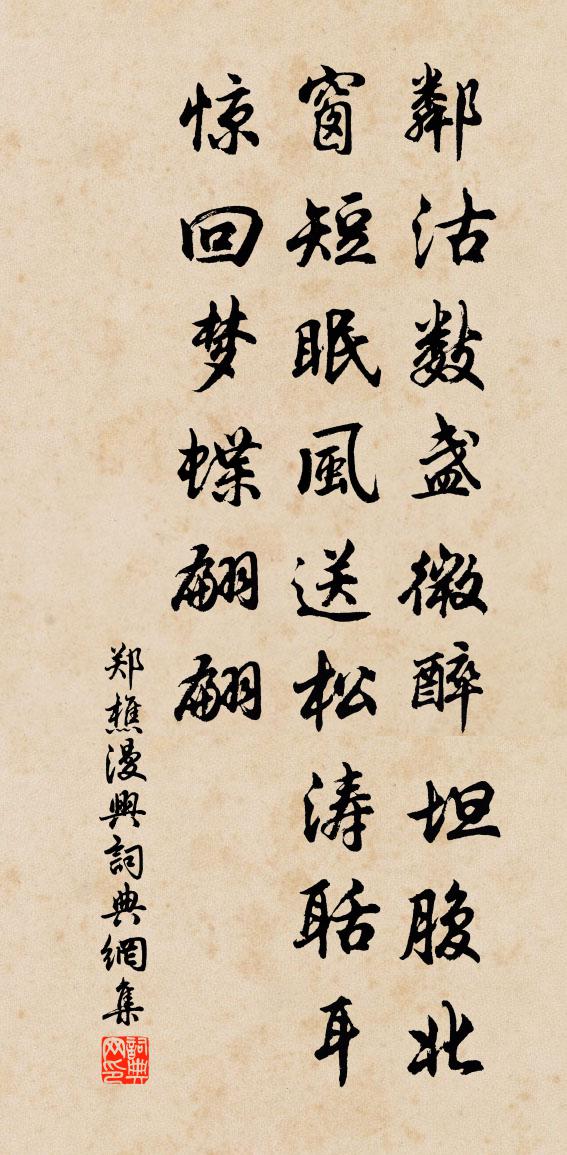 鄰沽數盏微醉坦腹北
窗短眠風送松涛聒耳
惊回梦蝶翩翩
郑樵漫興詞典網集
詞典网印